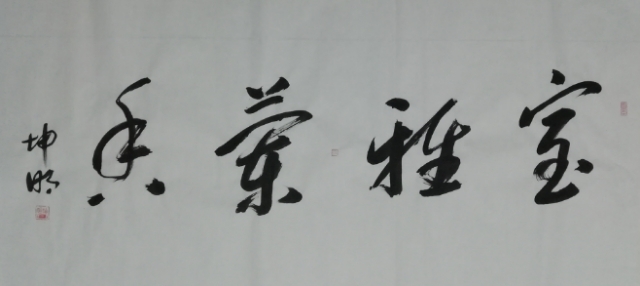 室雅兰香
坤明